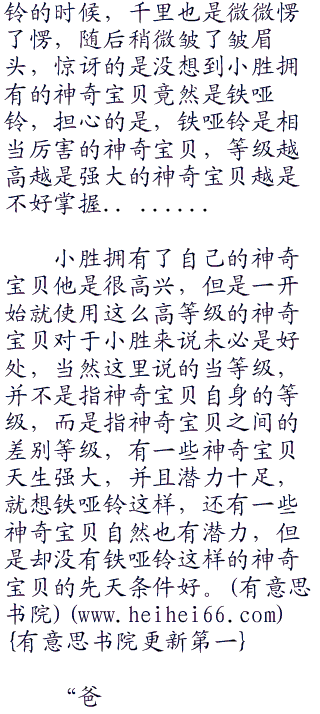 铃的时候，千里也是微微愣
了愣，随后稍微皱了皱眉
头，惊讶的是没想到小胜拥
有的神奇宝贝竟然是铁哑
铃，担心的是，铁哑铃是相
当厉害的神奇宝贝，等级越
高越是强大的神奇宝贝越是
不好掌握.. .......
小胜拥有了自己的神奇
宝贝他是很高兴，但是一开
始就使用这么高等级的神奇
宝贝对于小胜来说未必是好
处，当然这里说的当等级，
并不是指神奇宝贝自身的等
级，而是指神奇宝贝之间的
差别等级，有一些神奇宝贝
天生强大，并且潜力十足，
就想铁哑铃这样，还有一些
神奇宝贝自然也有潜力，但
是却没有铁哑铃这样的神奇
宝贝的先天条件好。(有意思
书院)(www.heihei66.com)
{有意思书院更新第一}
“爸